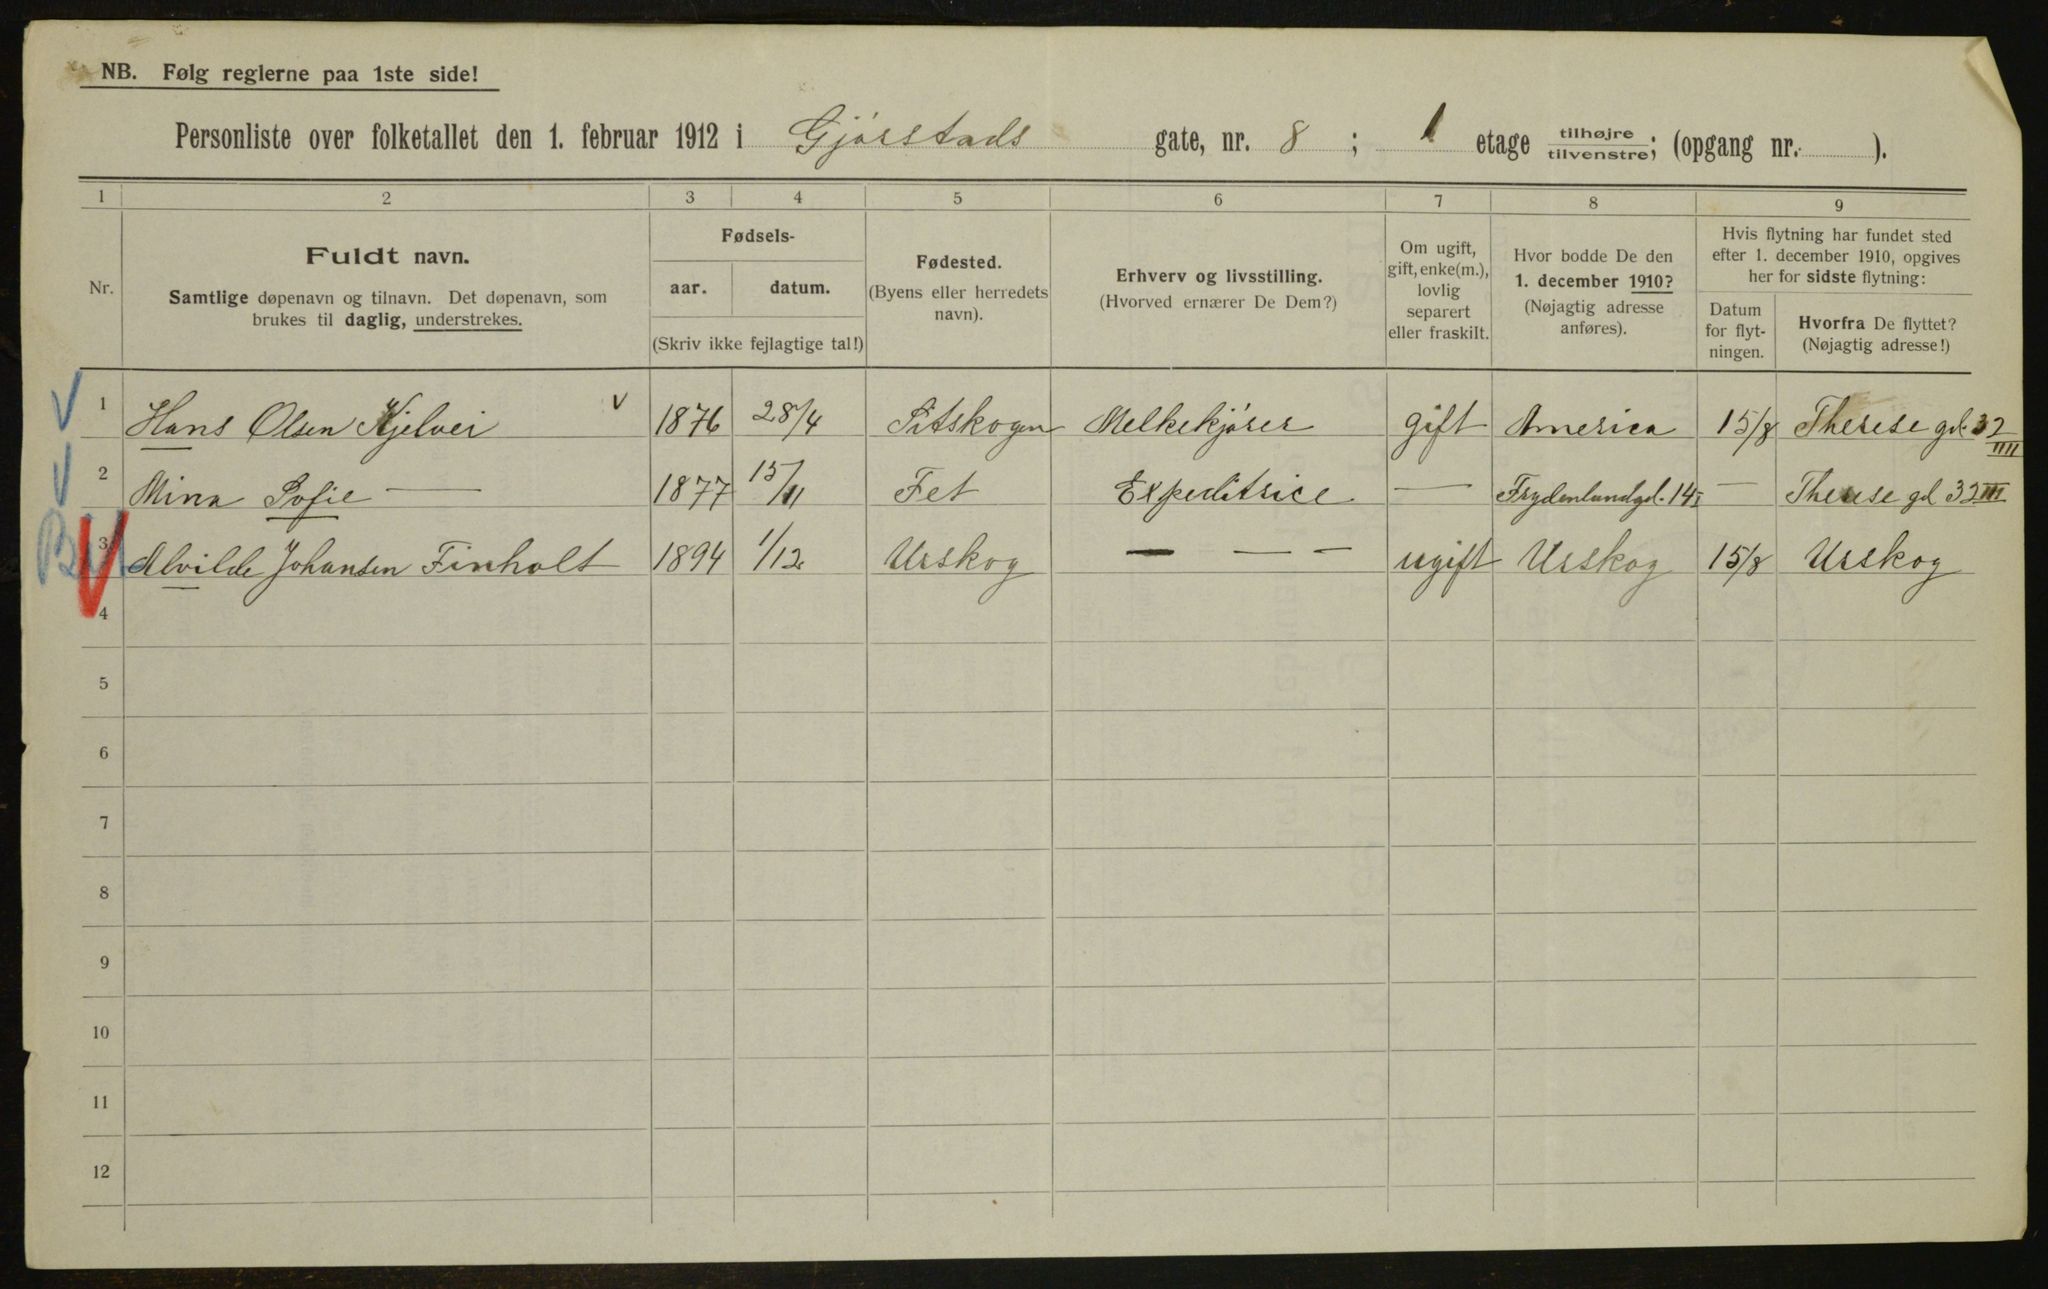 NB. Følg reglerne paa 1ste side!
Personliste over folketallet den 1. februar 1912 i Gjørstads gate, nr. 8 ; 1 etage tilhøjre/tilvenstre; (opgang nr. ).
1 2 3 4 5 6 7 8 9
Nr.
Fuldt navn.
Samtlige døpenavn og tilnavn. Det døpenavn, som
brukes til daglig, understrekes.
Fødsels-
aar. datum.
(Skriv ikke fejlagtige tal!)
Fødested.
(Byens eller herredets
navn).
Erhverv og livsstilling.
(Hvorved ernærer De Dem?)
Om ugift,
gift, enke(m.),
lovlig
separert
eller fraskilt.
Hvor bodde De den
1. december 1910?
(Nøjagtig adresse
anføres).
Hvis flytning har fundet sted
efter 1. december 1910, opgives
her for sidste flytning:
Datum
for flyt-
ningen.
Hvorfra De flyttet?
(Nøjagtig adresse!)
1 Hans Olsen Kjelvei 1876 28/4 Melkekjører gift America 15/8 Therese gd. 32 IIII
2 Mina Sofie — 1877 15/11 Fet Expeditrice — Frydenlundgd. 14 I — Therese gd 32 III
3 Alvilde Johansen Finholt 1894 1/12 Urskog — — — ugift Urskog 15/8 Urskog
4
5
6
7
8
9
10
11
12